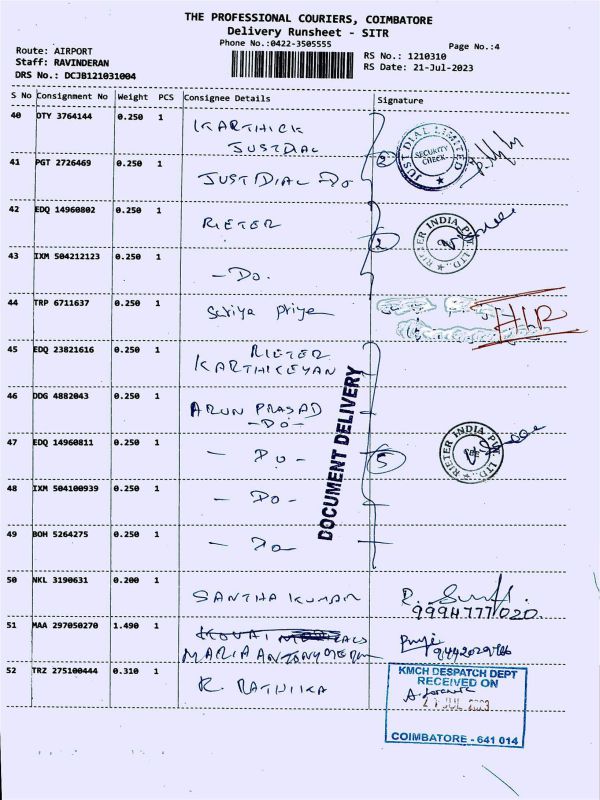 THE PROFESSIONAL COURIERS, COIMBATORE
Delivery Runsheet - SITR
Phone No.:0422-3505555
Page No.:4
Route: AIRPORT
Staff: RAVINDERAN
DRS No.: DCJB121031004
RS No.: 1210310
RS Date: 21-Jul-2023
S No Consignment No Weight PCS Consignee Details Signature
40 OTY 3764144 0.250 1 KARTHICK
JUSTDIAL
41 PGT 2726469 0.250 1 JUSTDIAL Do
2
JUST DIAL LIMITED
SECURITY CHECK
42 EDQ 14960802 0.250 1 RIETER
2
RIETER INDIA PVT. LTD.
43 IXM 504212123 0.250 1 -Do.
44 TRP 6711637 0.250 1 Priya
45 EDQ 23821616 0.250 1 RIETER
KARTHIKEYAN
46 DDG 4882043 0.250 1 ARUN PRASAD
-DO-
47 EDQ 14960811 0.250 1 - Do -
5
RIETER INDIA PVT. LTD.
48 IXM 504100939 0.250 1 - Do -
49 BOH 5264275 0.250 1 - Do
DOCUMENT DELIVERY
50 NKL 3190631 0.200 1 SANTHA KUMAR
9994777020.
51 MAA 297050270 1.490 1 KOVAI
MARIA ANTONY
52 TRZ 275100444 0.310 1 R. RATHIKA
KMCH DESPATCH DEPT
RECEIVED ON
JUL
COIMBATORE - 641 014